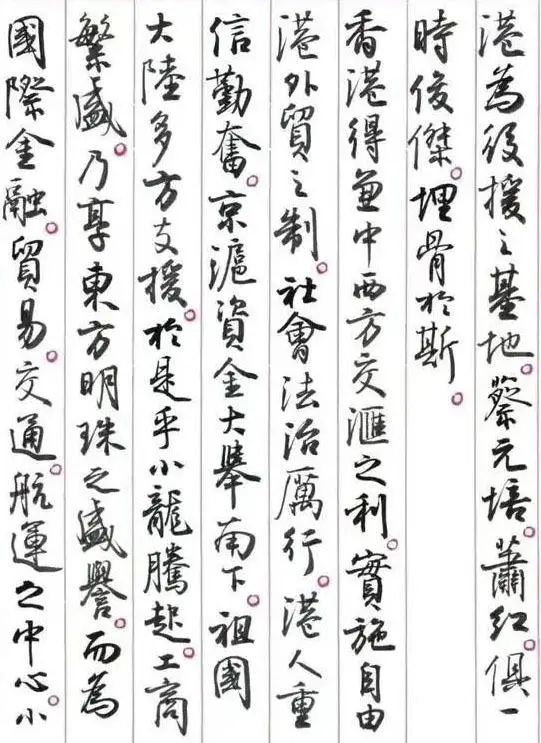 港為後援之基地。蔡元培。蕭紅。俱一
時俊傑。埋骨於斯。
香港得兼中西方交滙之利。實施自由
港外貿之制。社會法治厲行。港人重
信勤奮。京滬資金大舉南下。祖國
大陸多方支援。於是乎小龍騰起。工商
繁盛。乃享東方明珠之盛譽。而為
國際金融。貿易。交通。航運之中心。小